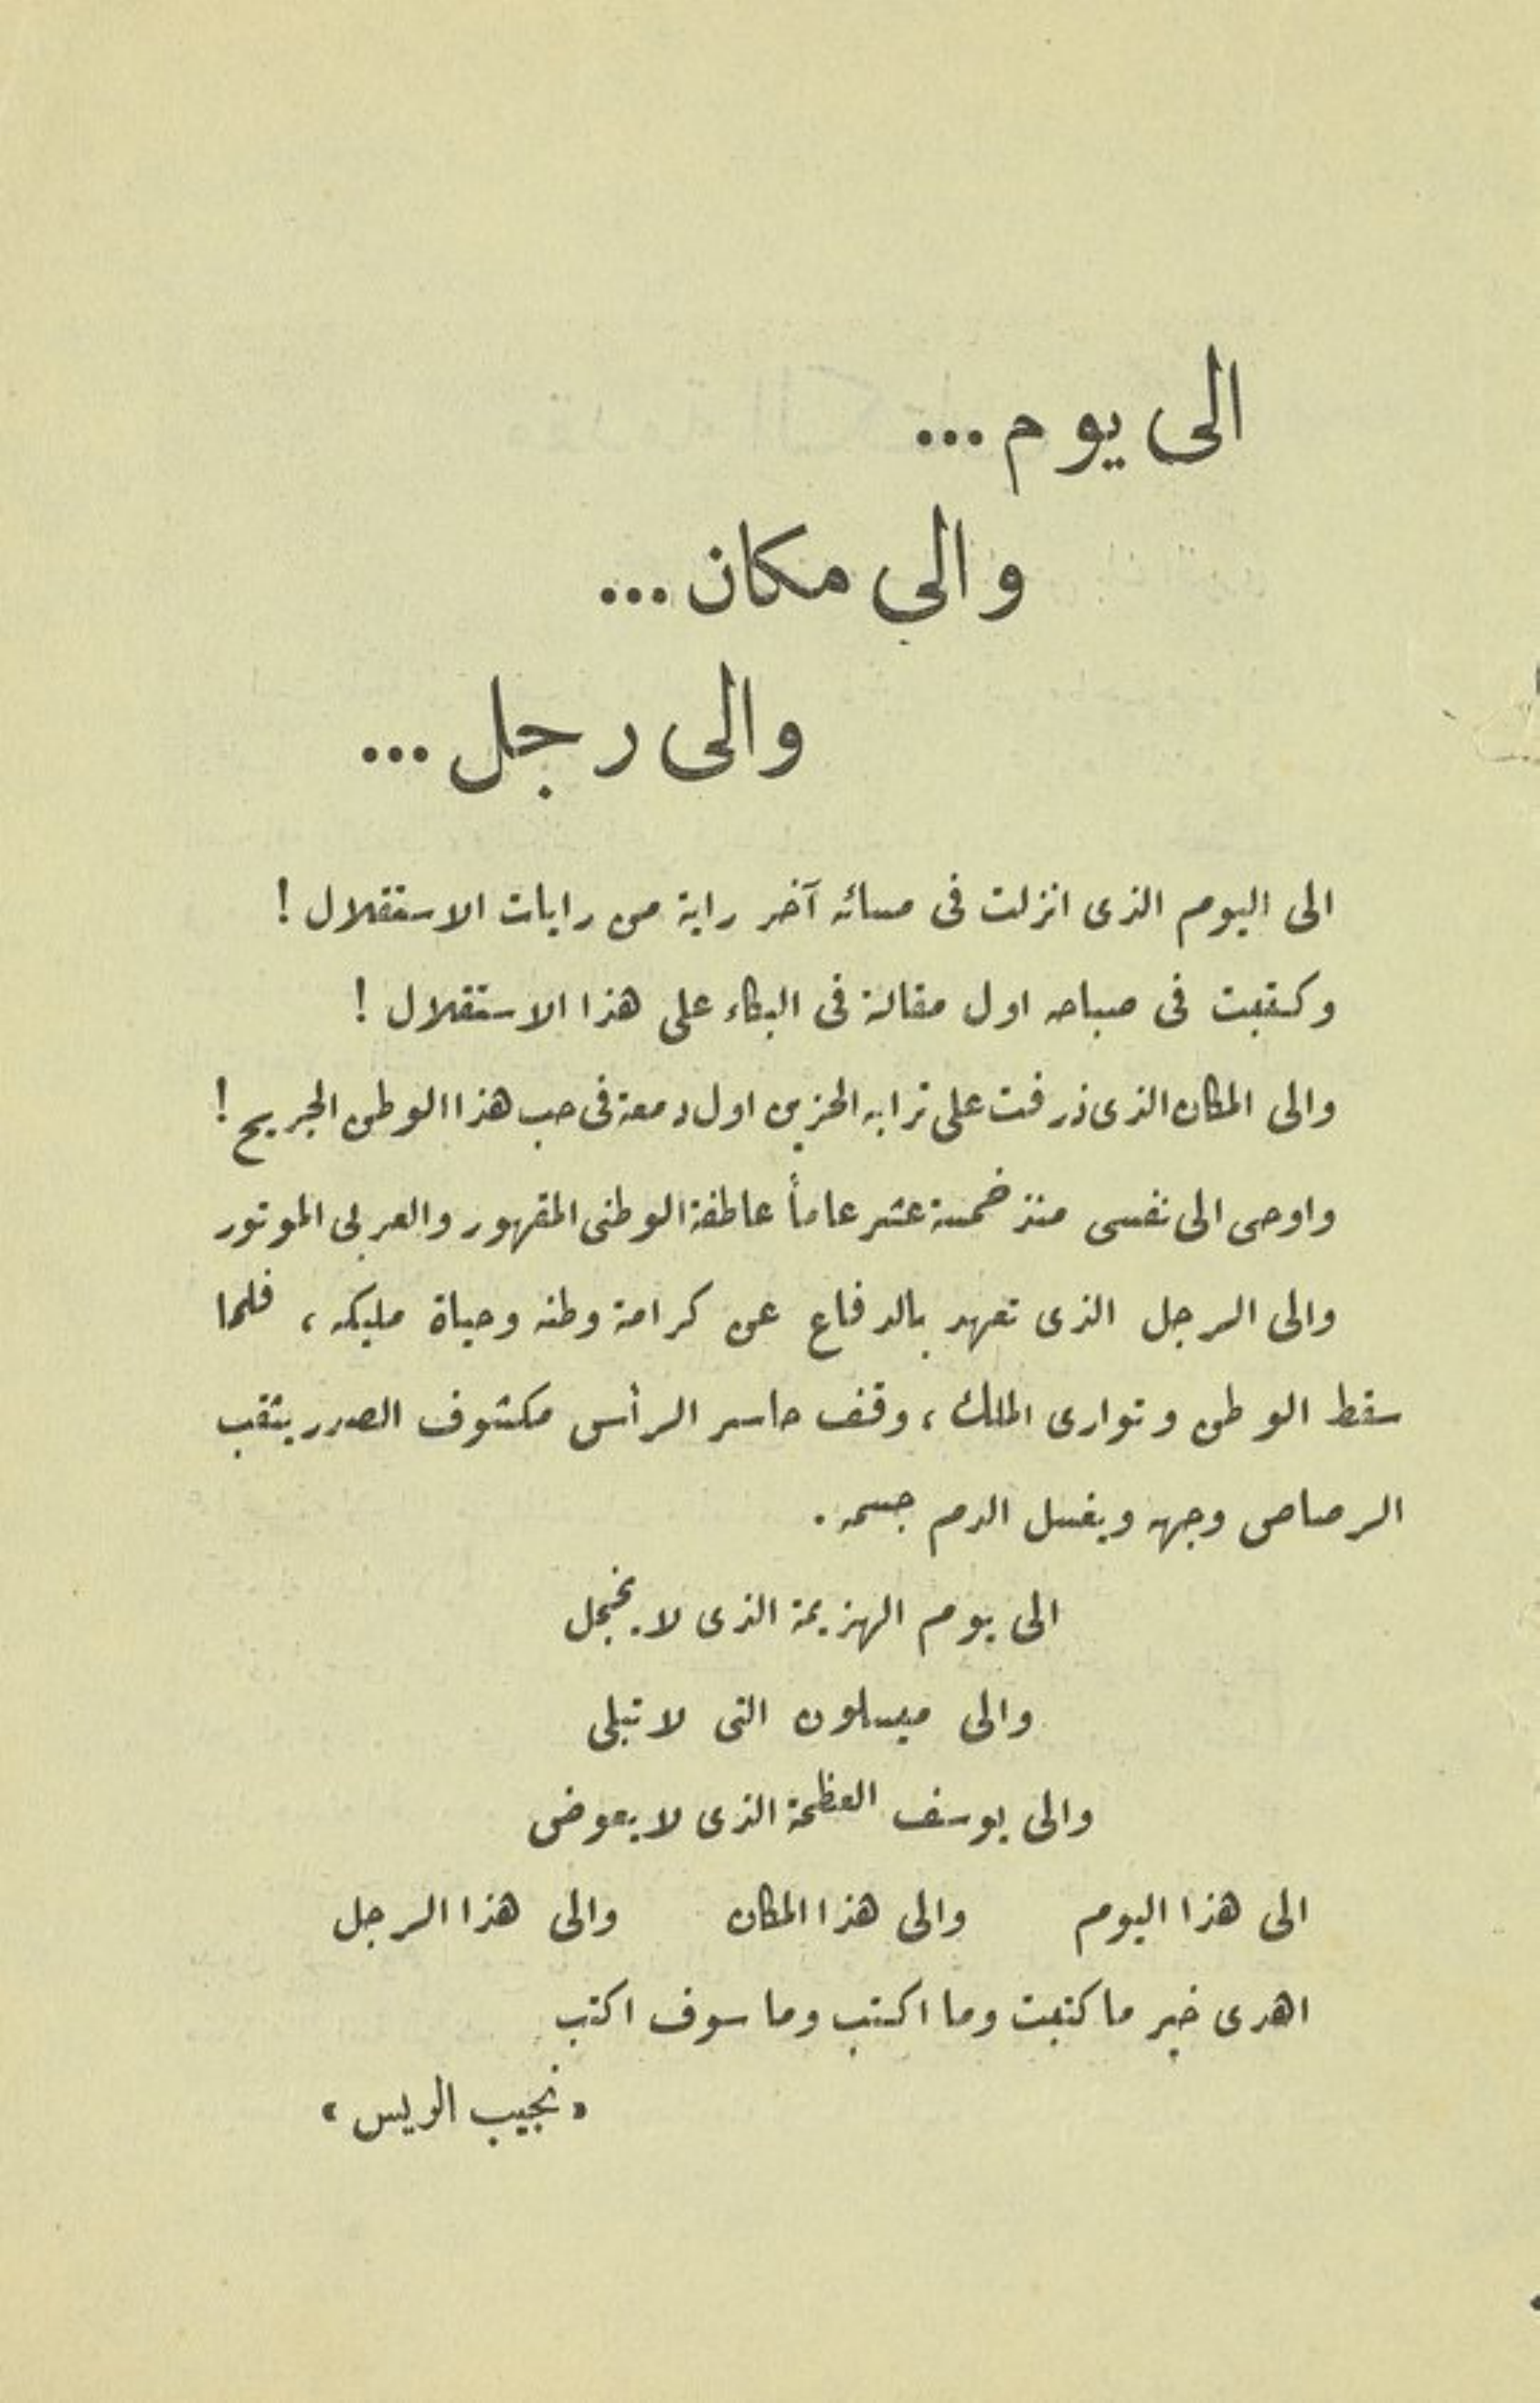 الى يوم ...
والى مكان ...
والى رجل ...
الى اليوم الذى انزلت فى مسائه آخر راية من رايات الاستقلال !
وكتبت فى صباحه اول مقالة فى البكاء على هذا الاستقلال !
والى المكان الذى ذرفت على ترابه الحزين اول دمعة فى حب هذا الوطن الجريح !
واوحى الى نفسى منذ خمسة عشر عاماً عاطفة الوطنى المقهور والعربى الموتور
والى الرجل الذى تعهد بالدفاع عن كرامة وطنه وحياة مليكه ، فلما
سقط الوطن وتوارى الملك ، وقف حاسر الرأس مكشوف الصدر يثقب
الرصاص وجهه ويغسل الدم جسمه .
الى يوم الهزيمة الذى لا يخجل
والى ميسلون التى لا تبلى
والى يوسف العظمة الذى لا يعوض
الى هذا اليوم والى هذا المكان والى هذا الرجل
اهدى خير ما كتبت وما اكتب وما سوف اكتب
« نجيب الريس »